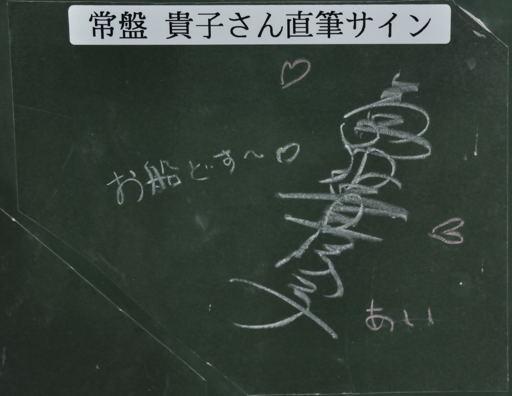 常盤 貴子さん直筆サイン
お船どす〜
常盤貴子